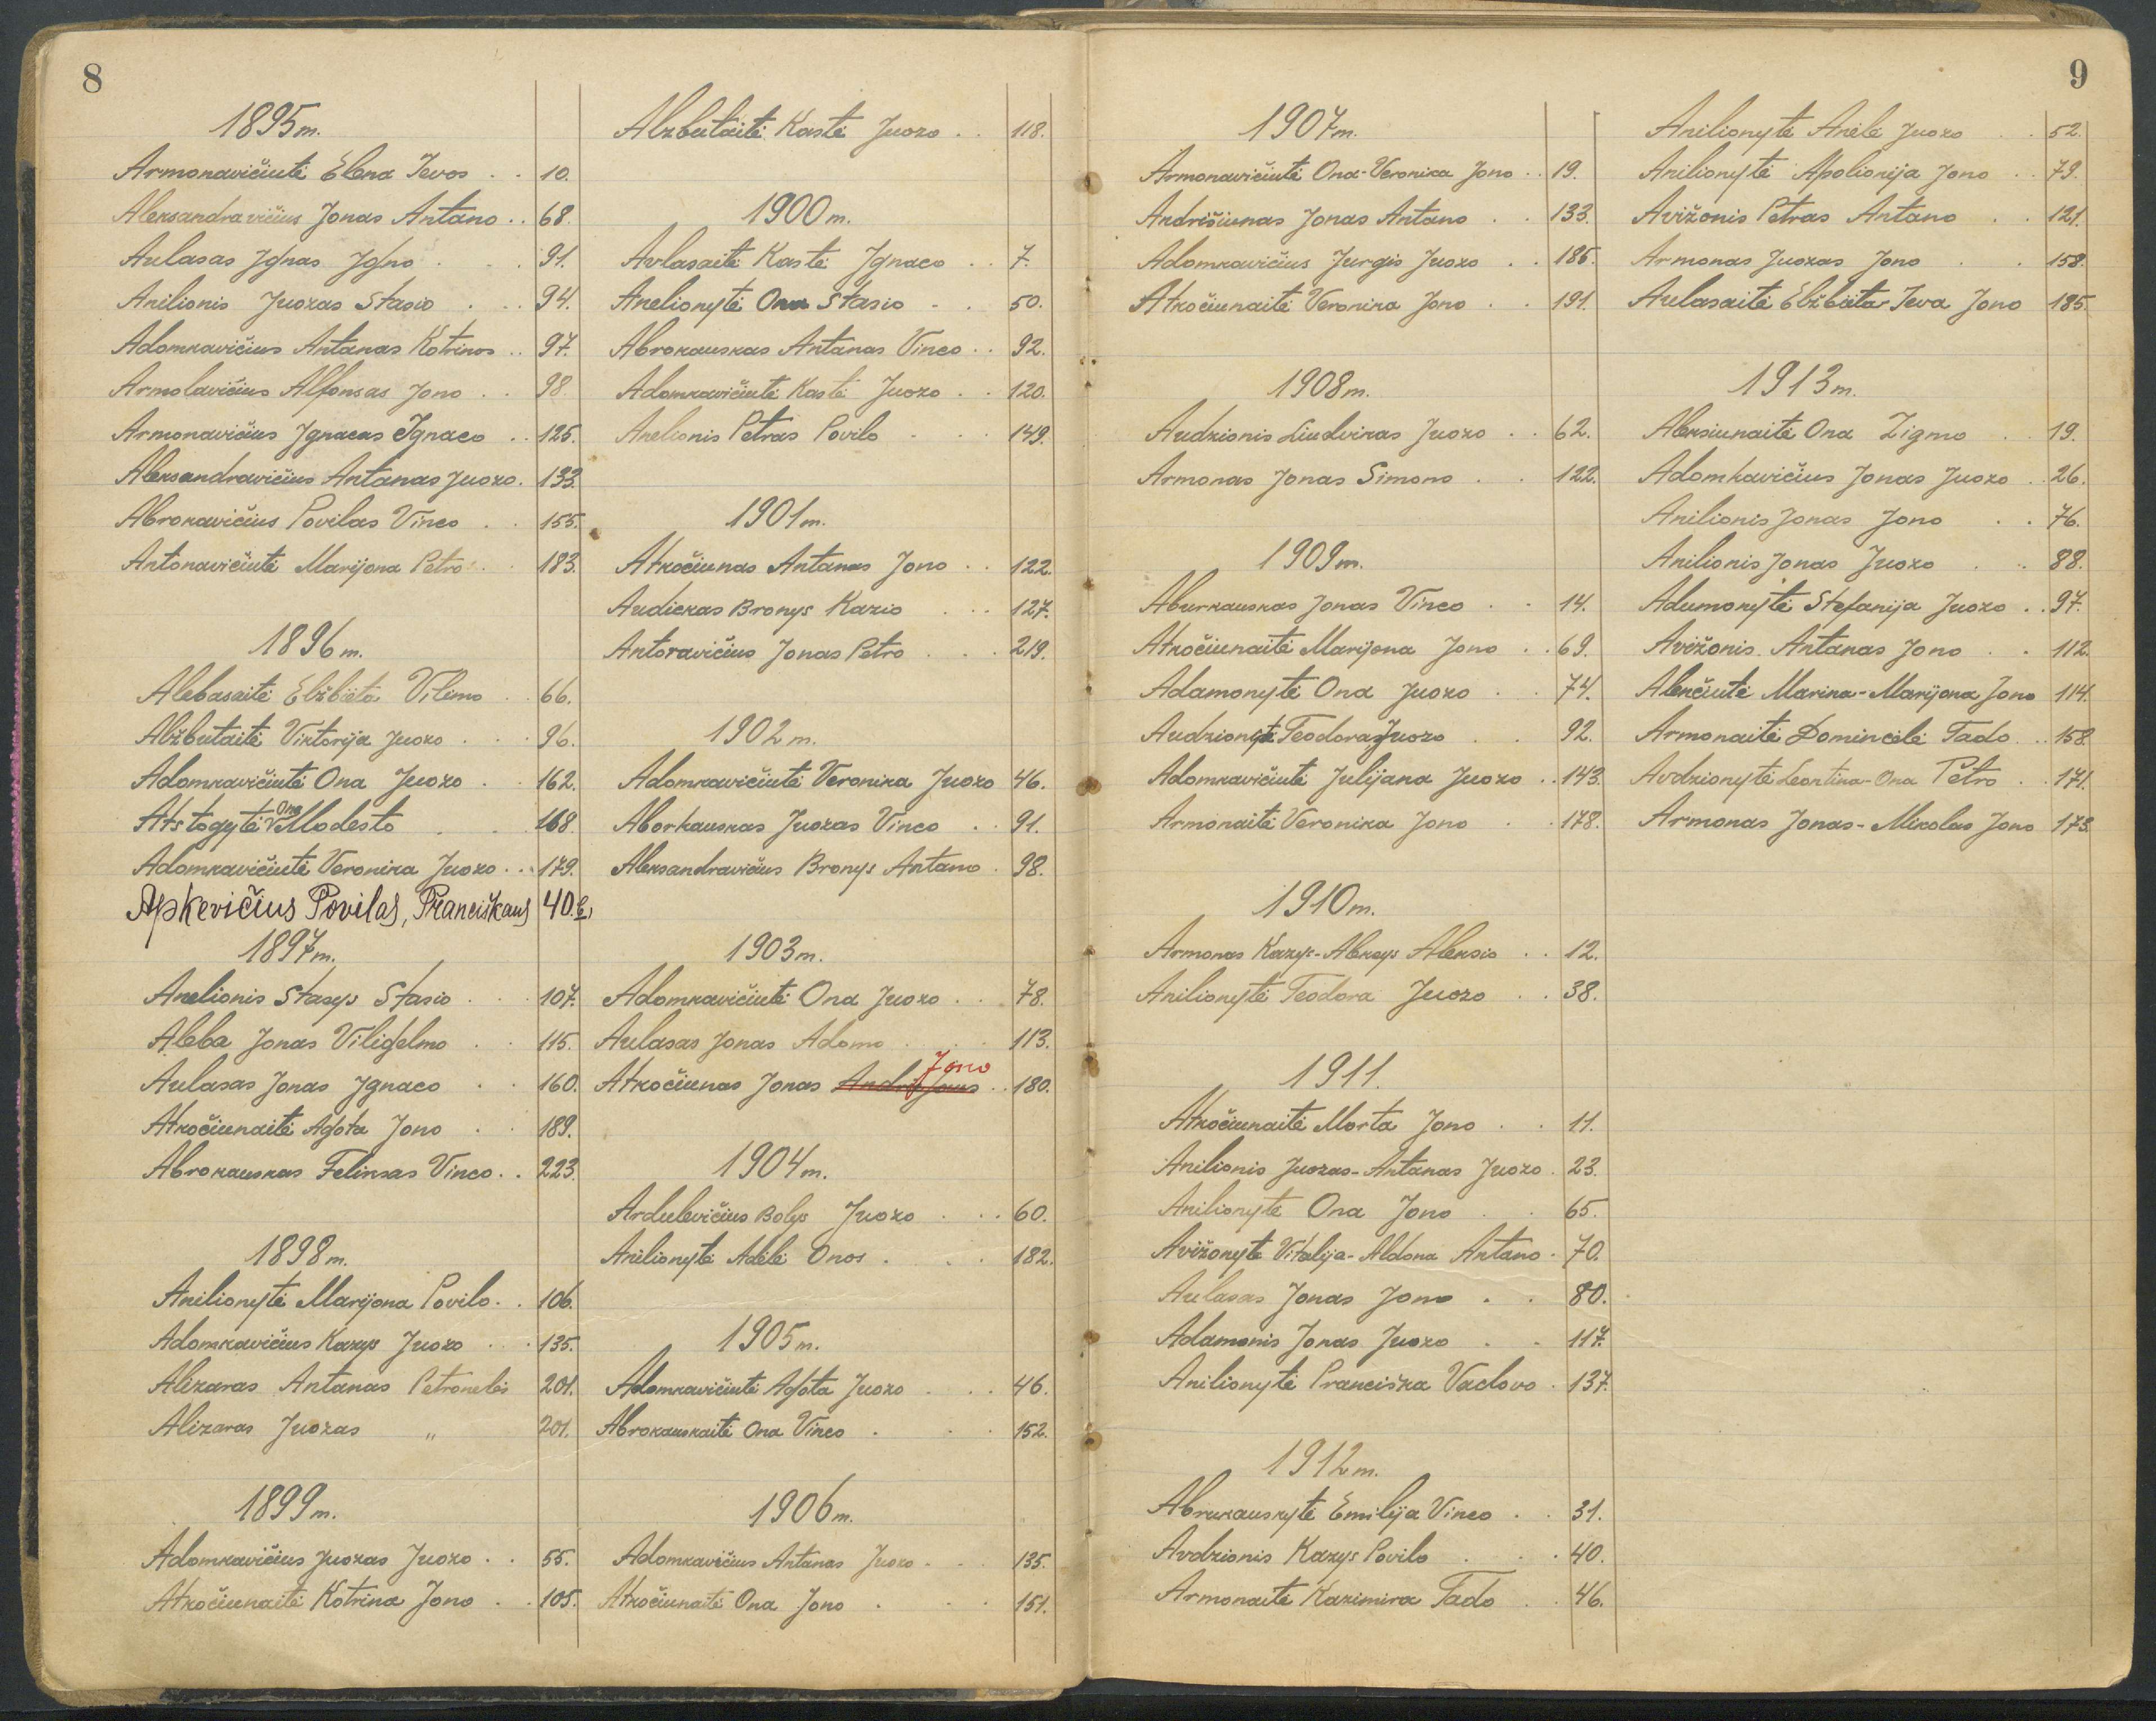 8
1895 m.
Armonavičiutė Elena Ievos . . 10.
Aleksandravičius Jonas Antano . . 68.
Aulasas Ignas Igno . . . 91.
Anilionis Juozas Stasio . . . 94.
Adomkavičius Antanas Kotrinos . . 97.
Armolavičius Alfonsas Jono . . 98.
Armonavičius Ignacas Ignaco . . 125.
Aleksandravičius Antanas Juozo . 133.
Abrokavičius Povilas Vinco . . 155.
Antonavičiutė Marijona Petro . . 183.
1896 m.
Alebasaitė Elžbieta Vilimo . . 66.
Alžbutaitė Viktorija Juozo . . . 96.
Adomkavičiutė Ona Juozo . . 162.
Atstogytė Ona Modesto . . . 168.
Adomkavičiutė Veronika Juozo . . . 179.
Apkevičius Povilas, Pranciškaus 40.
1897 m.
Anelionis Stasys Stasio . . . 107.
Aleba Jonas Viligelmo . . 115.
Aulasas Jonas Ignaco . . 160.
Atkočiunaitė Agota Jono . . 189.
Abrokauskas Feliksas Vinco . . 223.
1898 m.
Anilionytė Marijona Povilo . . 106.
Adomkavičius Kazys Juozo . . . 135.
Alizaras Antanas Petronelės 201.
Alizaras Juozas " 201.
1899 m.
Adomkavičius Juozas Juozo . . 55.
Atkočiunaitė Kotrina Jono . . 105.
Alzbutaitė Kastė Juozo . . 118.
1900 m.
Avlasaitė Kastė Ignaco . . 7.
Anelionytė Ona Stasio . . 50.
Abrokauskas Antanas Vinco . . 92.
Adomkavičiutė Kastė Juozo . . 120.
Anelionis Petras Povilo . . . 149.
1901 m.
Atkočiunas Antanas Jono . . 122.
Audickas Bronys Kazio . . . 127.
Antoravičius Jonas Petro . . . 219.
1902 m.
Adomkavičiutė Veronika Juozo 46.
Aborkauskas Juozas Vinco . . 91.
Aleksandravičius Bronys Antano . 98.
1903 m.
Adomkavičiutė Ona Juozo . . 78.
Aulasas Jonas Adomo . . . 113.
Atkočiunas Jonas Andriejaus Jono . . 180.
1904 m.
Ardulevičius Bolys Juozo . . . 60.
Anilionytė Adėlė Onos . . . 182.
1905 m.
Adomkavičiutė Agota Juozo . . . 46.
Abrokauskaitė Ona Vinco . . . 152.
1906 m.
Adomkavičius Antanas Juozo . . . 135.
Atkočiunaitė Ona Jono . . . 151.
9
1907 m.
Armonavičiutė Ona-Veronika Jono . . 19.
Andrišiunas Jonas Antano . . 133.
Adomkavičius Jurgis Juozo . . 186.
Atkočiunaitė Veronika Jono . . 191.
1908 m.
Audzionis Liudvikas Juozo . . 62.
Armonas Jonas Simono . . 122.
1909 m.
Aburkauskas Jonas Vinco . . 14.
Atkočiunaitė Marijona Jono . . 69.
Adamonytė Ona Juozo . . 74.
Audzionytė Teodora Juozo . . 92.
Adomkavičiutė Julijana Juozo . . 143.
Armonaitė Veronika Jono . . 178.
1910 m.
Armonas Kazys-Aleksys Aleksio . . 12.
Anilionytė Teodora Juozo . . 38.
1911.
Atkočiunaitė Morta Jono . . 11.
Anilionis Juozas-Antanas Juozo . 23.
Anilionytė Ona Jono . . 65.
Avižonytė Vitalija-Aldona Antano . 70.
Aulasas Jonas Jono . . 80.
Adamonis Jonas Juozo . . 117.
Anilionytė Pranciška Vaclovo . 137.
1912 m.
Abrukauskytė Emilija Vinco . . 31.
Avdzionis Kazys Povilo . . . 40.
Armonaitė Kazimira Tado . . 46.
Anilionytė Anėlė Juozo . . 52.
Anilionytė Apolionija Jono . . 79.
Avižonis Petras Antano . . 121.
Armonas Juozas Jono . . 158.
Aulasaitė Elžbieta-Ieva Jono 185.
1913 m.
Aleksiunaitė Ona Zigmo . . 19.
Adomkavičius Jonas Juozo . . 26.
Anilionis Jonas Jono . . 76.
Anilionis Jonas Juozo . . 88.
Adumonytė Stefanija Juozo . . 97.
Avižonis Antanas Jono . . 112.
Alenčiutė Marina-Marijona Jono 114.
Armonaitė Domincėlė Tado . . 158.
Avdzionytė Leontina-Ona Petro . . 171.
Armonas Jonas-Mikolas Jono 173.